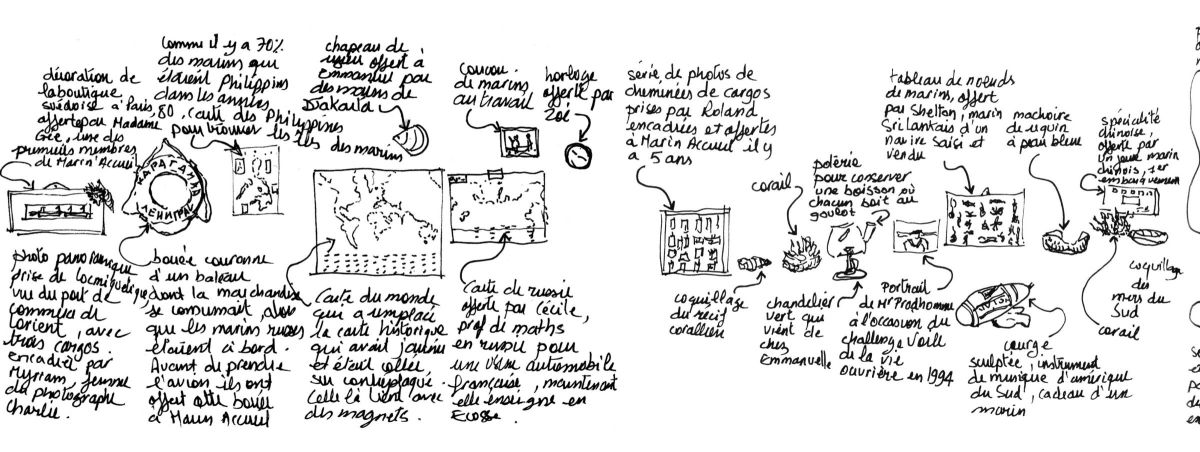 décoration de
la boutique
suédoise à Paris,
offerte par Madame
Gée, une des
premières membres
de Marin'Accueil
Comme il y a 70%
des marins qui
étaient Philippins
dans les années
80, carte des Philippines
pour trouver les îles des marins
chapeau de
offert à
Emmanuel par
des marins de
Djakarta
coucou
de marins
au travail
horloge
offerte par
Zoé
КАРАГАНДА
ЛЕНИНГРАД
photo panoramique
prise de Locmiquélic
vue du port de
commerce de
Lorient, avec
trois cargos
encadrée par
Myriam, femme
du photographe
Charlie.
bouée couronne
d'un bateau
dont la marchandise
se consumait, alors
que les marins russes
étaient à bord.
Avant de prendre
l'avion ils ont
offert cette bouée
à Marin Accueil
Carte du monde
qui a remplacé
la carte historique
qui avait jaunie
et était collée
sur contreplaqué.
Celle là tient avec
des magnets.
Carte de russie
offerte par Cécile,
prof de maths
en russie pour
une usine automobile
française, maintenant
elle enseigne en
Ecosse.
série de photos de
cheminées de cargos
prises par Roland
encadrées et offertes
à Marin Accueil il y
a 5 ans
corail
poterie
pour conserver
une boisson où
chacun boit au
goulot
tableau de noeuds
de marins, offert
par Shelton, marin
Sri Lankais d'un
navire saisi et
vendu
machoire
de requin
à peau bleue
spécialité
chinoise,
offerte par
un jeune marin
chinois, 1er
embarquement
coquillage
du récif
corallien
chandelier
vert qui
vient de
chez
Emmanuelle
Portrait
de Mr Prodhomme
à l'occasion du
challenge Voile
de la vie
ouvrière en 1994
courge
sculptée, instrument
de musique d'amérique
du Sud, cadeau d'un
marin
corail
coquillage
des
mers du
Sud